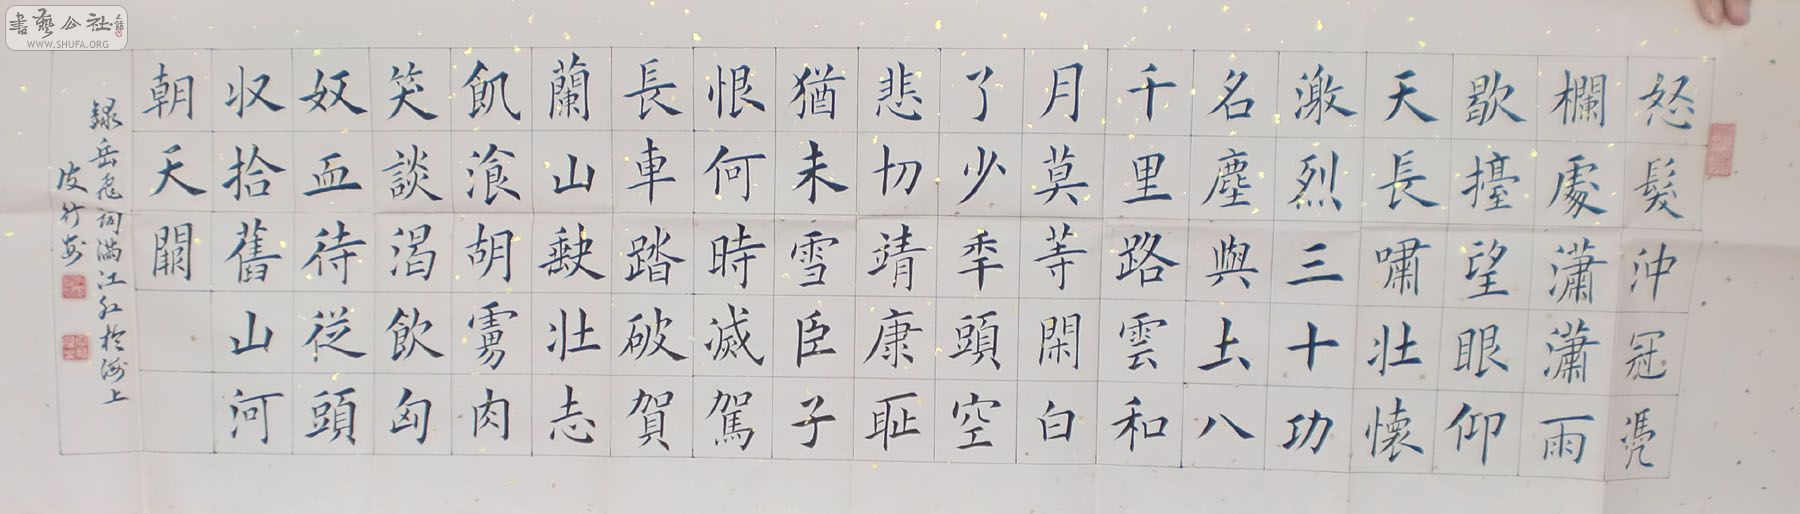 書藝公社
WWW.SHUFA.ORG
怒髮沖冠凴
欄處瀟瀟雨
歇擡望眼仰
天長嘯壯懷
激烈三十功
名塵與土八
千里路雲和
月莫等閑白
了少年頭空
悲切靖康恥
猶未雪臣子
恨何時滅駕
長車踏破賀
蘭山缺壯志
飢飡胡虜肉
笑談渴飲匈
奴血待從頭
收拾舊山河
朝天闕
錄岳飛詞滿江紅於海上
皮竹安